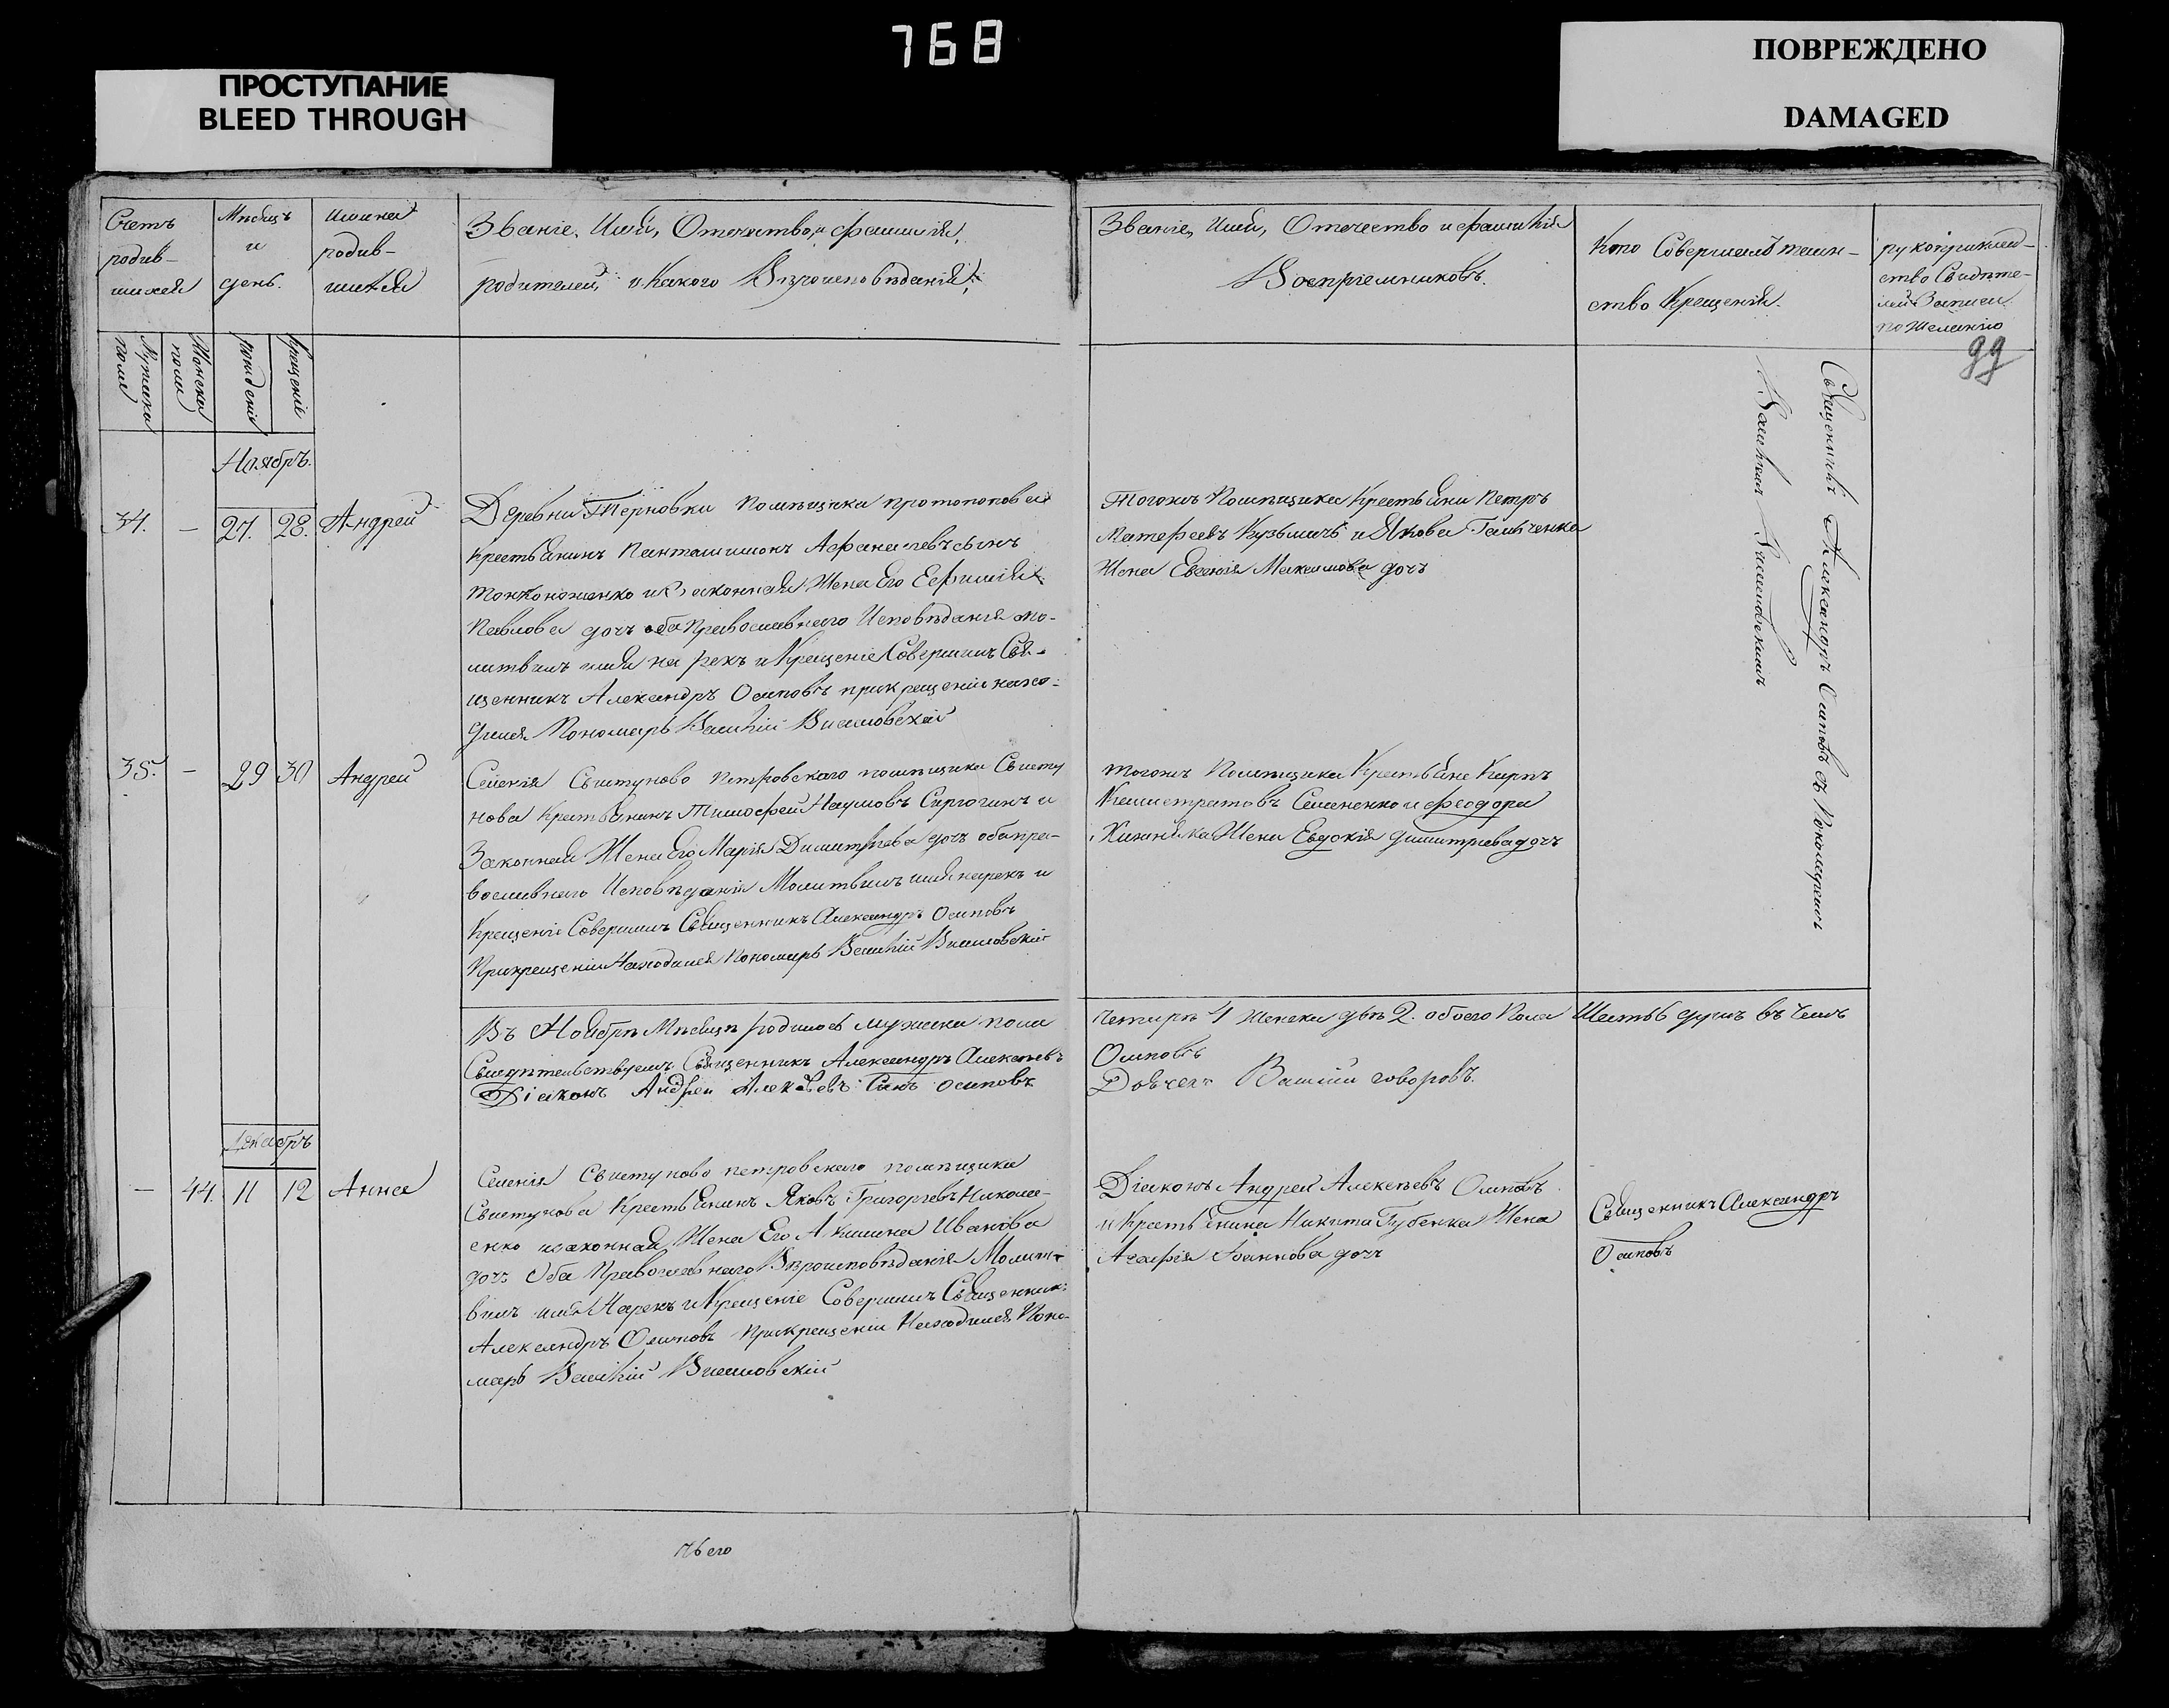 768
ПРОСТУПАНИЕ
BLEED THROUGH
ПОВРЕЖДЕНО
DAMAGED
Счетъ
родив-
шихся
Мѣсяцъ
и
день.
Имена
родив-
шихся
Званіе, Имя, Отечество, и фамилія,
родителей, и Какого Вѣроисповѣданія,
Званіе, Имя, Отечество и фамилія
Воспріемниковъ.
Кто Совершалъ таин-
ство Крещенія.
рукоприклад-
ство Свидѣте-
лей Записи
по желанію
99
Мужеска
пола
Женска
пола
рожденія
крещенія
Ноябрь.
34. — 27. 28. Андрей
Деревни Терновки помѣщика протопопова
крестьянинъ Пантелимонъ Афанасіевъ сынъ
и Законная Жена Его Евфимія
Павлова дочь оба Православнаго Исповѣданія мо-
литвилъ имя на рекъ и Крещеніе Совершилъ Свя-
щенникъ Александръ Осиповъ при крещеніи нахо-
дился Пономарь Василій Висловскій
Тогожъ Помѣщика Крестьяни Петръ
Матфеевъ Кузьмичъ и Якова
Жена Евгенія Максимова дочь
Священникъ Александръ Осиповъ съ Пономаремъ
Василіемъ Висловскимъ
35. — 29 30 Андрей
Селенія Свистуново Петровскаго помѣщика Свисту
нова Крестьянинъ Тимофей Наумовъ Сирогинъ и
Законная Жена Его Марія Димитрева дочь оба пра-
вославнаго Исповѣданія Молитвилъ имя нарекъ и
Крещеніе Совершилъ Священникъ Александръ Осиповъ
При крещеніи Находился Пономарь Василій Висловскій
тогожъ Помѣщика Крестьяне Карпъ
Семененко и феодора
Жена Евдокія димитрева дочь
Въ Ноябрѣ Мѣсяцѣ родилось мужска пола
четыри 4 женска двѣ 2. обоего Пола Шесть 6 душъ въ чемъ
Свидѣтельствуемъ Священникъ Александръ Алексѣевъ
Осиповъ
Діаконъ Андрей Алексѣевъ Сынъ Осиповъ
Дьячекъ Василій говоровъ.
Декабрь
— 44. 11 12 Анна
Селенія Свистуново петровскаго помѣщика
Свистунова Крестьянинъ Яковъ Григоріевъ Никола-
енко и законная Жена Его Акилина Иванова
дочь Оба Православнаго Вѣроисповѣданія Молит-
вилъ имя Нарекъ и Крещеніе Совершилъ Священникъ
Александръ Осиповъ При крещеніи Находился Поно-
марь Василій Висловскій
Діаконъ Андрей Алексѣевъ Осиповъ
и Крестьянина Никита Губенка Жена
Агафія Іоаннова дочь
Священникъ Александръ
Осиповъ